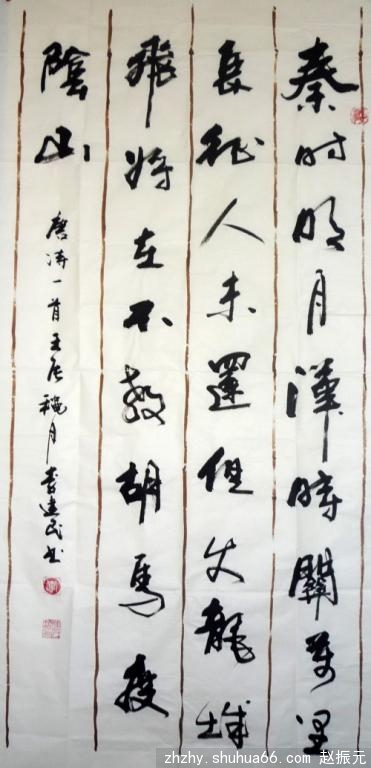 秦时明月漢時關萬里
長征人未還但使龍城
飛将在不教胡馬度
陰山
唐诗一首壬辰穐月建民书
zhzhy.shuhua66.com 赵振元